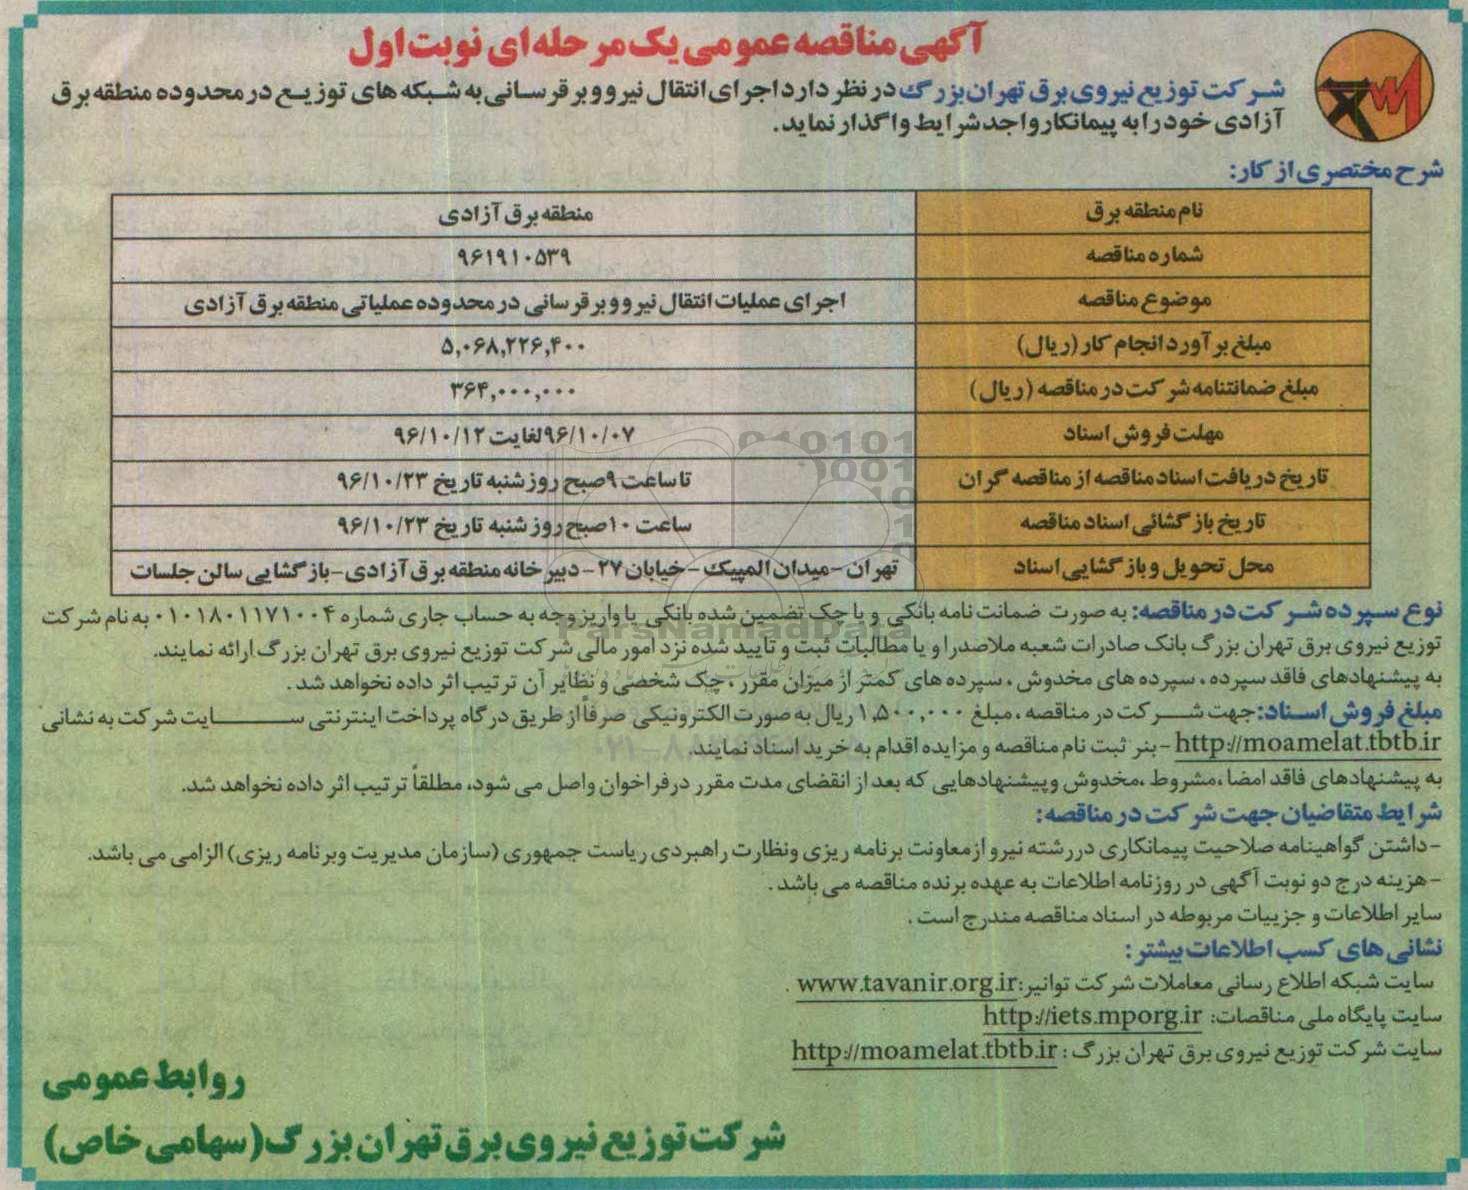 آگهی مناقصه عمومی یک مرحله ای نوبت اول
شرکت توزیع نیروی برق تهران بزرگ در نظر دارد اجرای انتقال نیرو و برقرسانی به شبکه های توزیع در محدوده منطقه برق
آزادی خود را به پیمانکار واجد شرایط واگذار نماید.
شرح مختصری از کار:
نام منطقه برق منطقه برق آزادی
شماره مناقصه ۹۶۱۹۱۰۵۳۹
موضوع مناقصه اجرای عملیات انتقال نیرو و برقرسانی در محدوده عملیاتی منطقه برق آزادی
مبلغ برآورد انجام کار (ریال) ۵,۰۶۸,۲۲۶,۴۰۰
مبلغ ضمانتنامه شرکت در مناقصه (ریال) ۳۶۴,۰۰۰,۰۰۰
مهلت فروش اسناد ۹۶/۱۰/۰۷ لغایت ۹۶/۱۰/۱۲
تاریخ دریافت اسناد مناقصه از مناقصه گران تا ساعت ۹ صبح روز شنبه تاریخ ۹۶/۱۰/۲۳
تاریخ بازگشائی اسناد مناقصه ساعت ۱۰ صبح روز شنبه تاریخ ۹۶/۱۰/۲۳
محل تحویل و بازگشایی اسناد تهران - میدان المپیک - خیابان ۲۷ - دبیرخانه منطقه برق آزادی - بازگشایی سالن جلسات
نوع سپرده شرکت در مناقصه: به صورت ضمانت نامه بانکی و یا چک تضمین شده بانکی یا واریز وجه به حساب جاری شماره ۰۱۰۱۸۰۱۱۷۱۰۰۴ به نام شرکت
توزیع نیروی برق تهران بزرگ بانک صادرات شعبه ملاصدرا و یا مطالبات ثبت و تایید شده نزد امور مالی شرکت توزیع نیروی برق تهران بزرگ ارائه نمایند.
به پیشنهادهای فاقد سپرده، سپرده های مخدوش، سپرده های کمتر از میزان مقرر، چک شخصی و نظایر آن ترتیب اثر داده نخواهد شد.
مبلغ فروش اسناد: جهت شرکت در مناقصه، مبلغ ۱,۵۰۰,۰۰۰ ریال به صورت الکترونیکی صرفاً از طریق درگاه پرداخت اینترنتی سایت شرکت به نشانی
http://moamelat.tbtb.ir - بنر ثبت نام مناقصه و مزایده اقدام به خرید اسناد نمایند.
به پیشنهادهای فاقد امضا، مشروط، مخدوش و پیشنهادهایی که بعد از انقضای مدت مقرر در فراخوان واصل می شود، مطلقاً ترتیب اثر داده نخواهد شد.
شرایط متقاضیان جهت شرکت در مناقصه:
- داشتن گواهینامه صلاحیت پیمانکاری در رشته نیرو از معاونت برنامه ریزی ونظارت راهبردی ریاست جمهوری (سازمان مدیریت وبرنامه ریزی) الزامی می باشد.
- هزینه درج دو نوبت آگهی در روزنامه اطلاعات به عهده برنده مناقصه می باشد.
سایر اطلاعات و جزییات مربوطه در اسناد مناقصه مندرج است.
نشانی های کسب اطلاعات بیشتر:
سایت شبکه اطلاع رسانی معاملات شرکت توانیر: www.tavanir.org.ir .
سایت پایگاه ملی مناقصات: http://iets.mporg.ir
سایت شرکت توزیع نیروی برق تهران بزرگ: http://moamelat.tbtb.ir
روابط عمومی
شرکت توزیع نیروی برق تهران بزرگ (سهامی خاص)
ParsNamadData